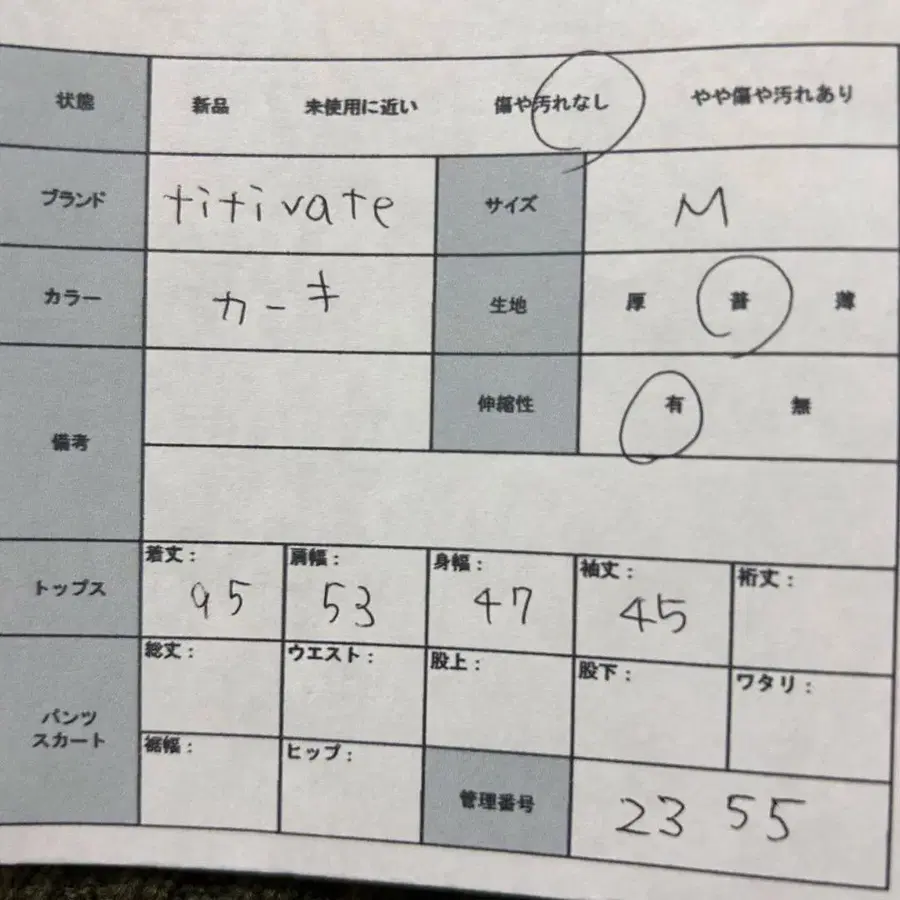 状態 新品 未使用に近い 傷や汚れなし やや傷や汚れあり
ブランド titivate サイズ M
カラー カーキ 生地 厚 普 薄
備考 伸縮性 有 無
トップス 着丈: 95 肩幅: 53 身幅: 47 袖丈: 45 裄丈:
パンツ スカート 総丈: ウエスト: 股上: 股下: ワタリ:
裾幅: ヒップ: 管理番号 23 55